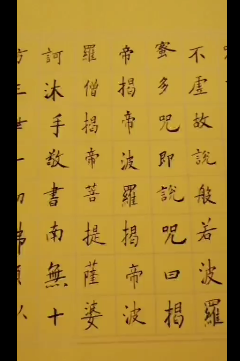 不虛故說般若波羅
蜜多咒即說咒曰揭
帝揭帝波羅揭帝波
羅僧揭帝菩提薩婆
訶沐手敬書南無十
方三世一切